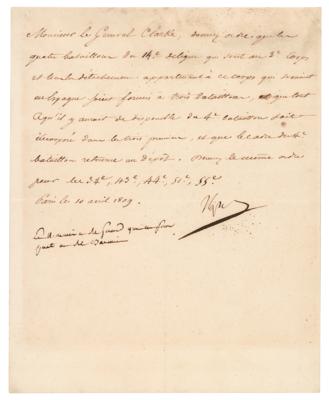 Monsieur le Général Clarke, donnez ordre que les
quatre bataillons du 14e de ligne qui sont au 3e corps
et tous les détachemens appartenant à ce corps qui seraient
en Espagne soient formés à trois bataillons, et que tout
ce qu'il y aurait de disponible du 4e bataillon soit
incorporé dans les trois premiers, et que le cadre du 4e
bataillon retourne au dépôt. Donnez le même ordre
pour les 34e, 43e, 44e, 51e, 55e.
Paris le 10 avril 1809.
Np